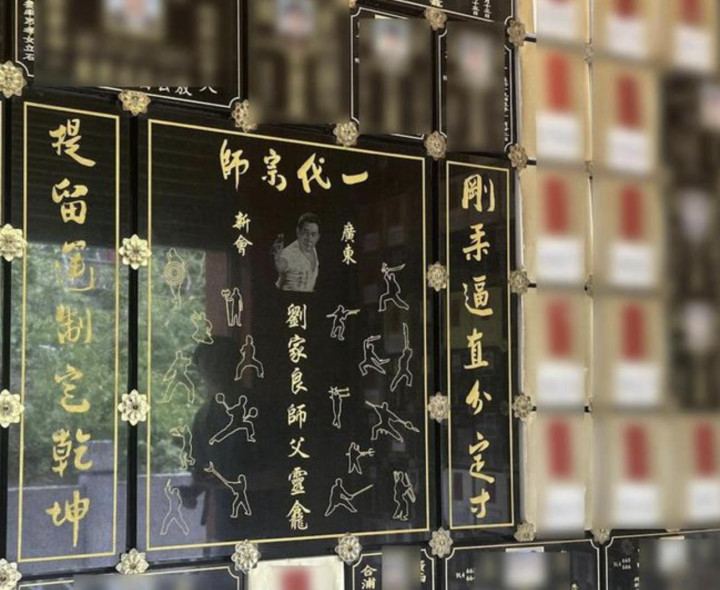 一代宗師
剛柔逼直分定寸
廣東
新會
劉家良師父靈龕
提留運制定乾坤
合浦